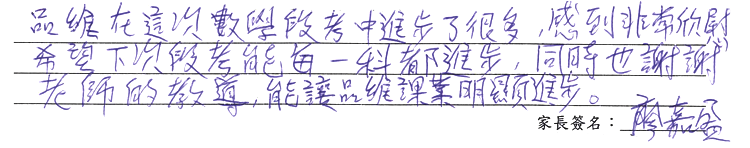 品維在這次數學段考中進步了很多,感到非常欣慰
希望下次段考能每一科都進步,同時也謝謝
老師的教導,能讓品維課業明顯進步。
家長簽名:廖嘉盈